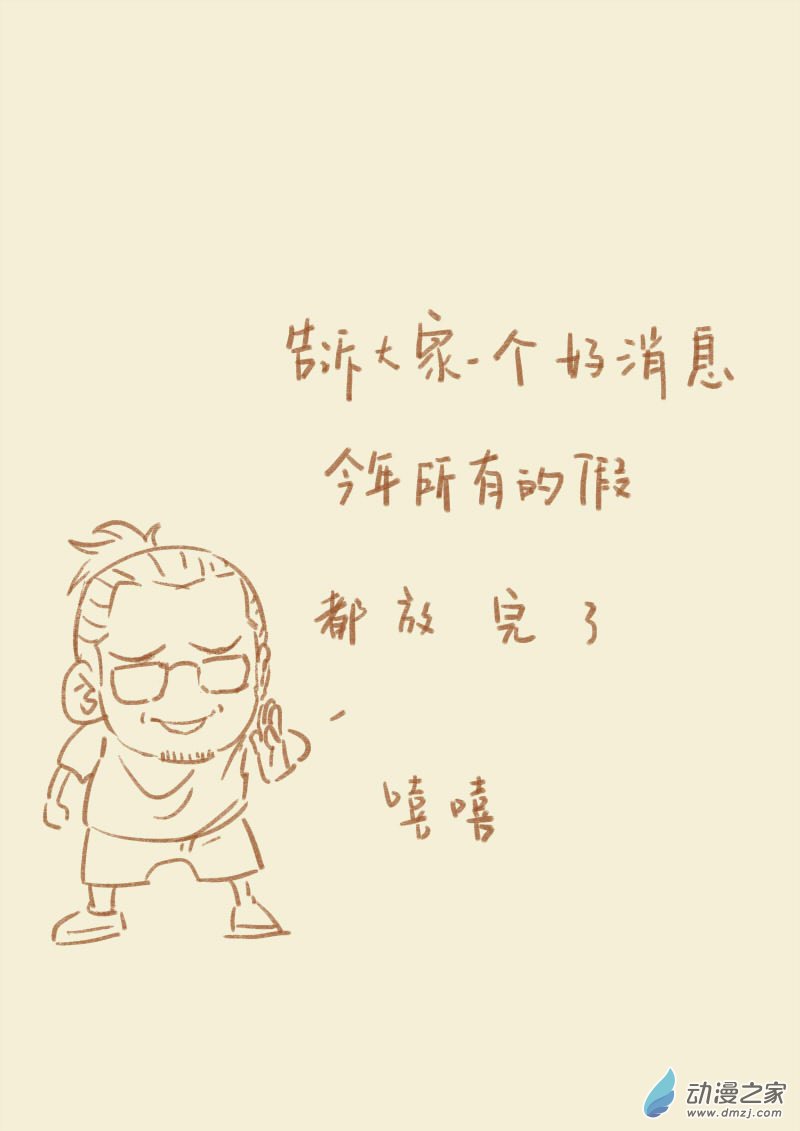 告诉大家一个好消息
今年所有的假
都放完了
嘻嘻
动漫之家
www.dmzj.com